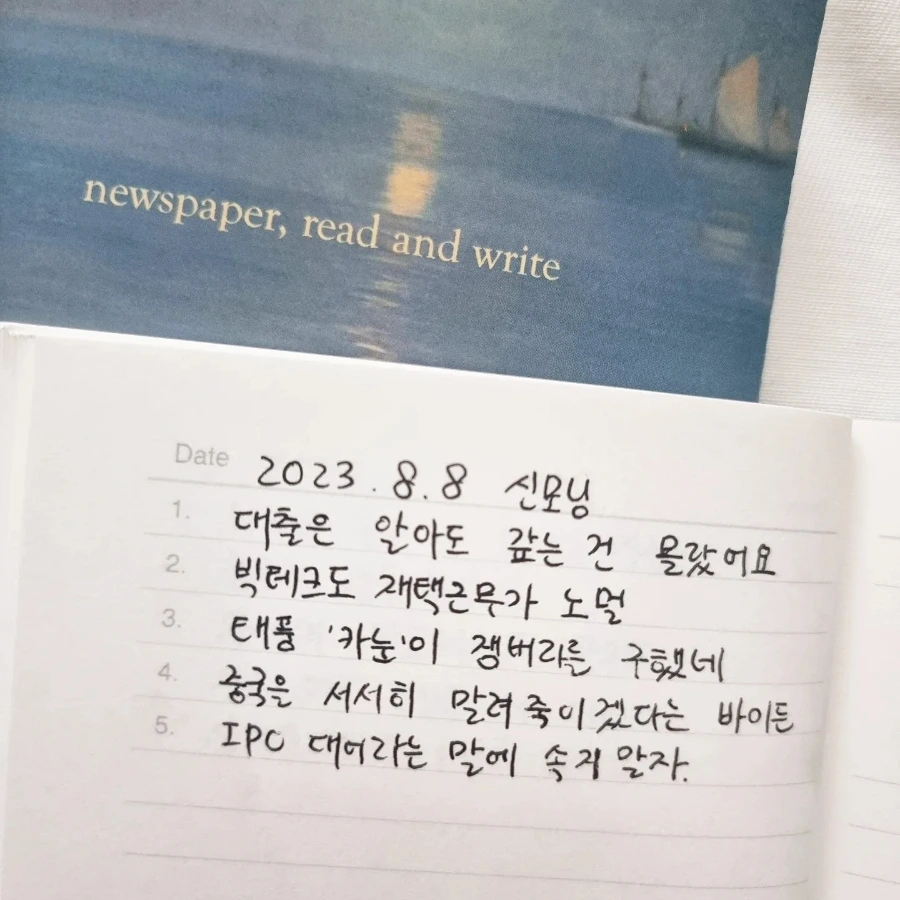 newspaper, read and write
Date 2023.8.8 신모닝
1. 대출은 알아도 갚는 건 몰랐어요
2. 빅테크도 재택근무가 노멀
3. 태풍 '카눈'이 잼버리를 구했네
4. 중국을 서서히 말려죽이겠다는 바이든
5. IPO 대어라는 말에 속지 말자.